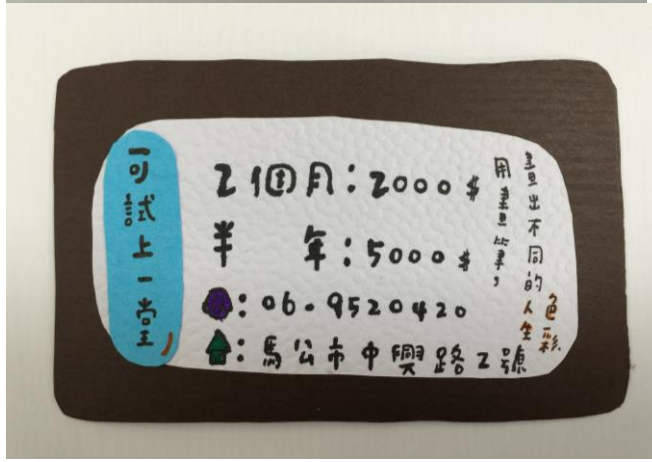 可試上一堂
2個月:2000$
半 年:5000$
:06-9520420
:馬公市中興路2號
用畫筆,
畫出不同的人生色彩